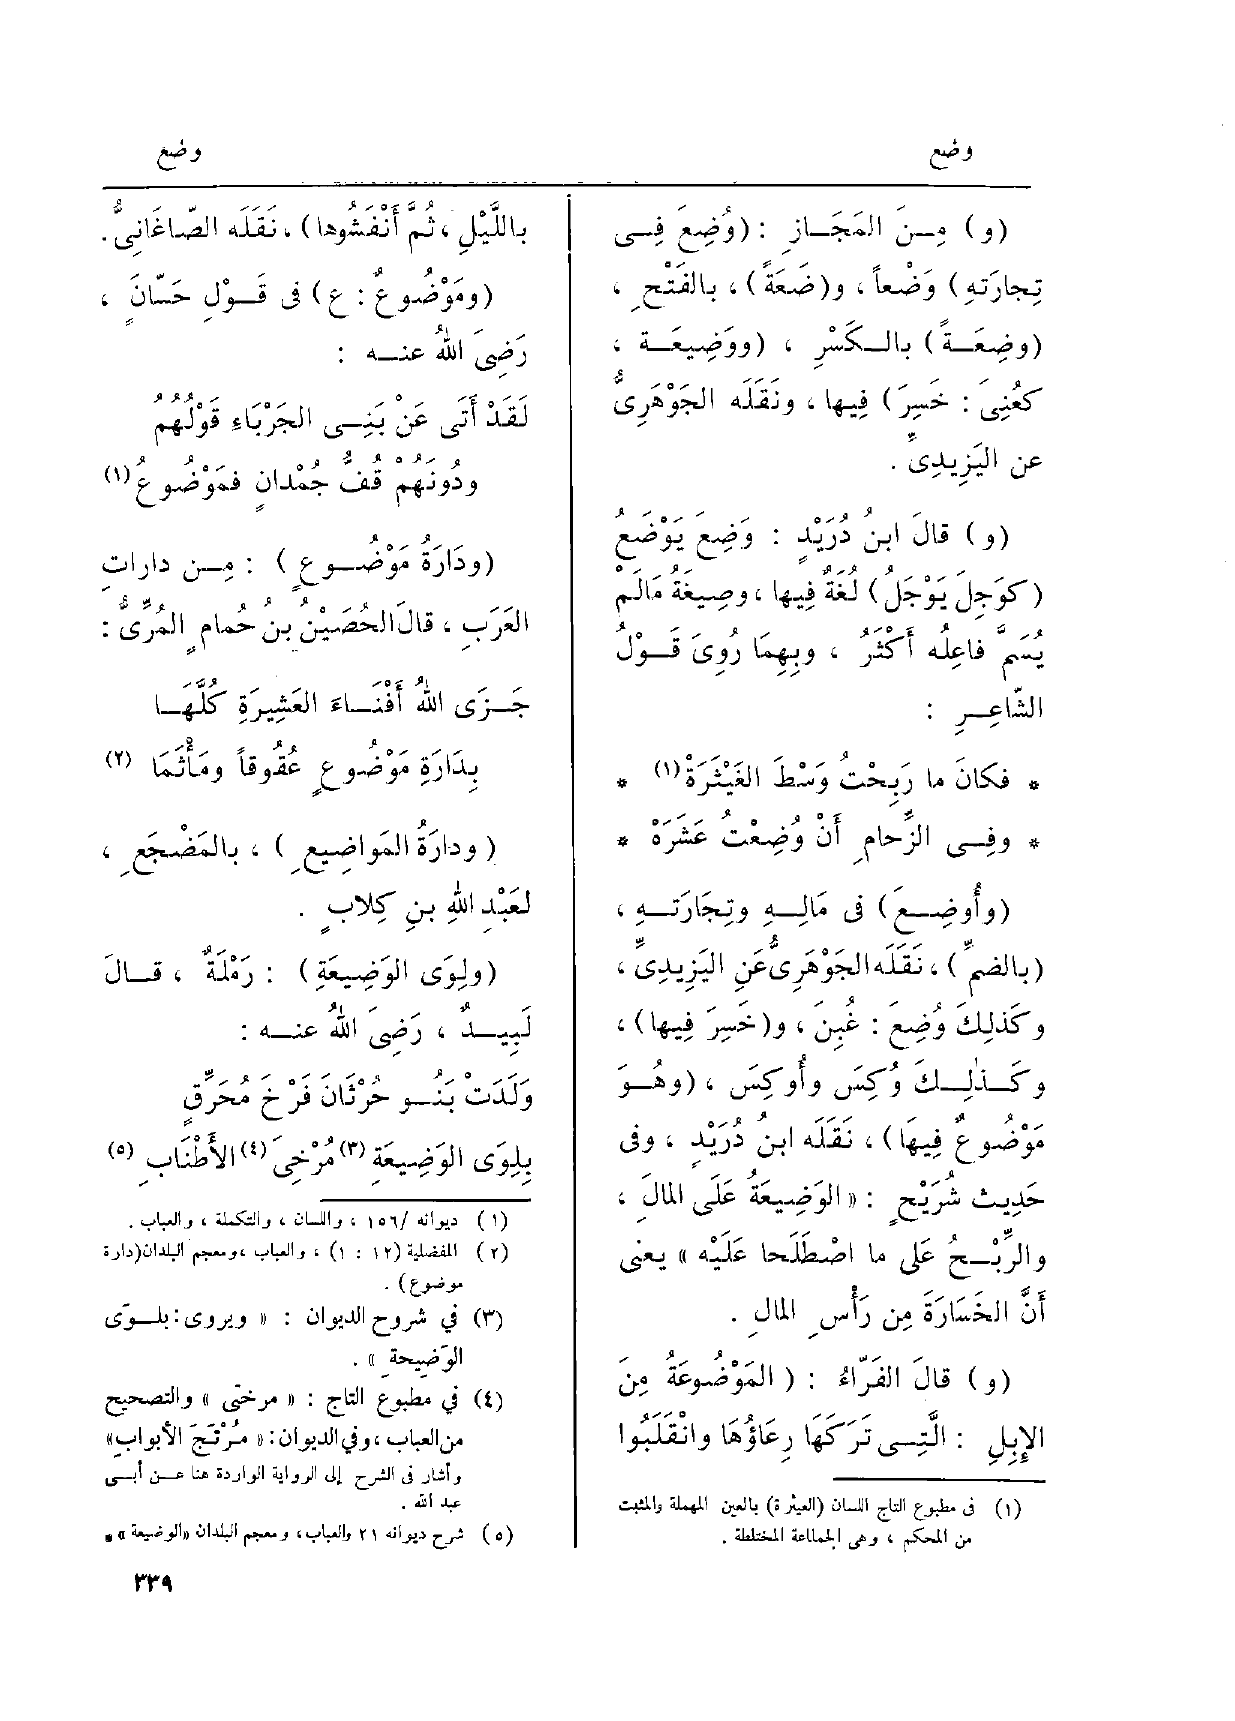 وضع
(و) مِنَ المَجَازِ : (وُضِعَ فِى
تِجارَتِه) وَضْعاً ، و(ضَعَةً) ، بالفَتْحِ ،
(وضِعَةً) بالكَسْرِ ، (ووَضِيعَة ،
كعُنِىَ : خَسِرَ) فِيها ، ونَقَلَه الجَوْهَرِىُّ
عن اليَزِيدِىِّ .
(و) قالَ ابنُ دُرَيْدٍ : وَضِعَ يَوْضَعُ
(كوَجِلَ يَوْجَلُ) لُغَةٌ فِيها ، وصِيغَةُ مَالَمْ
يُسَمَّ فاعِلُه أَكْثَرُ ، وبِهِمَا رُوِىَ قَوْلُ
الشّاعِرِ :
* فكانَ ما رَبِحْتُ وَسْطَ الغَيْثَرَةْ(١) *
* وفِى الزِّحامِ أَنْ وُضِعْتُ عَشَرَهْ *
(وأُوضِعَ) فى مَالِهِ وتِجَارَتِهِ ،
(بالضمِّ) ، نَقَلَه الجَوْهَرِىُّ عَنِ اليَزِيدِىِّ ،
وكَذلِكَ وُضِعَ : غُبِنَ ، و(خَسِرَ فِيها) ،
وكَذلِكَ وُكِسَ وأُوكِسَ ، (وهُوَ
مَوْضُوعٌ فِيهَا) ، نَقَلَه ابنُ دُرَيْدٍ ، وفى
حَدِيث شُرَيْحٍ : « الوَضِيعَةُ عَلَى المَالِ ،
والرِّبْحُ عَلَى ما اصْطَلَحا عَلَيْه » يعنى
أَنَّ الخَسَارَةَ مِن رَأْسِ المالِ .
(و) قالَ الفَرّاءُ : (المَوْضُوعَةُ مِنَ
الإِبِلِ : الَّتِى تَرَكَهَا رِعَاؤُهَا وانْقَلَبُوا
(١) فى مطبوع التاج اللسان (العيثرة) بالعين المهملة والمثبت
من المحكم ، وهى الجماعة المختلطة .
وضع
باللَّيْلِ ، ثُمَّ أَنْفَشُوها) ، نَقَلَه الصّاغَانِىُّ .
(ومَوْضُوعٌ : ع) فى قَوْلِ حَسّانٍ ،
رَضِىَ اللهُ عنه :
لَقَدْ أَتَى عَنْ بَنِى الجَرْبَاءِ قَوْلُهُمُ
ودُونَهُمْ قُفُّ جُمْدانٍ فمَوْضُوعُ(١)
(ودَارَةُ مَوْضُوعٍ) : مِن دارَاتِ
العَرَبِ ، قالَ الحُصَيْنُ بن حُمامٍ المُرِّىُّ :
جَزَى اللهُ أَفْنَاءَ العَشِيرَةِ كُلَّهَا
بِدَارَةِ مَوْضُوعٍ عُقُوقاً ومَأْثَمَا (٢)
(ودارَةُ المَواضِيعِ) ، بالمَضْجَعِ ،
لعَبْدِ اللهِ بنِ كِلابٍ .
(ولِوَى الوَضِيعَةِ) : رَمْلَةٌ ، قالَ
لَبِيدٌ ، رَضِىَ اللهُ عنه :
وَلَدَتْ بَنُو حُرْثَانَ فَرْخَ مُحَرِّقٍ
بِلِوَى الوَضِيعَةِ (٣) مُرْخِىَ(٤) الأَطْنَابِ (٥)
(١) ديوانه /١٥٦ ، واللسان ، والتكملة ، والعباب .
(٢) المفضلية (١٢ : ١) ، والعباب ، ومعجم البلدان(دارة
موضوع) .
(٣) في شروح الديوان : « ويروى: بلوَى
الوَضِيحةِ » .
(٤) في مطبوع التاج : « مرختى » والتصحيح
من العباب ، وفي الديوان: « مُرْتَجَ الأبوابِ»
وأشار فى الشرح إلى الرواية الواردة هنا عن أبى
عبد الله .
(٥) شرح ديوانه ٢١ والعباب، ومعجم البلدان «الوضيعة» .
٣٣٩